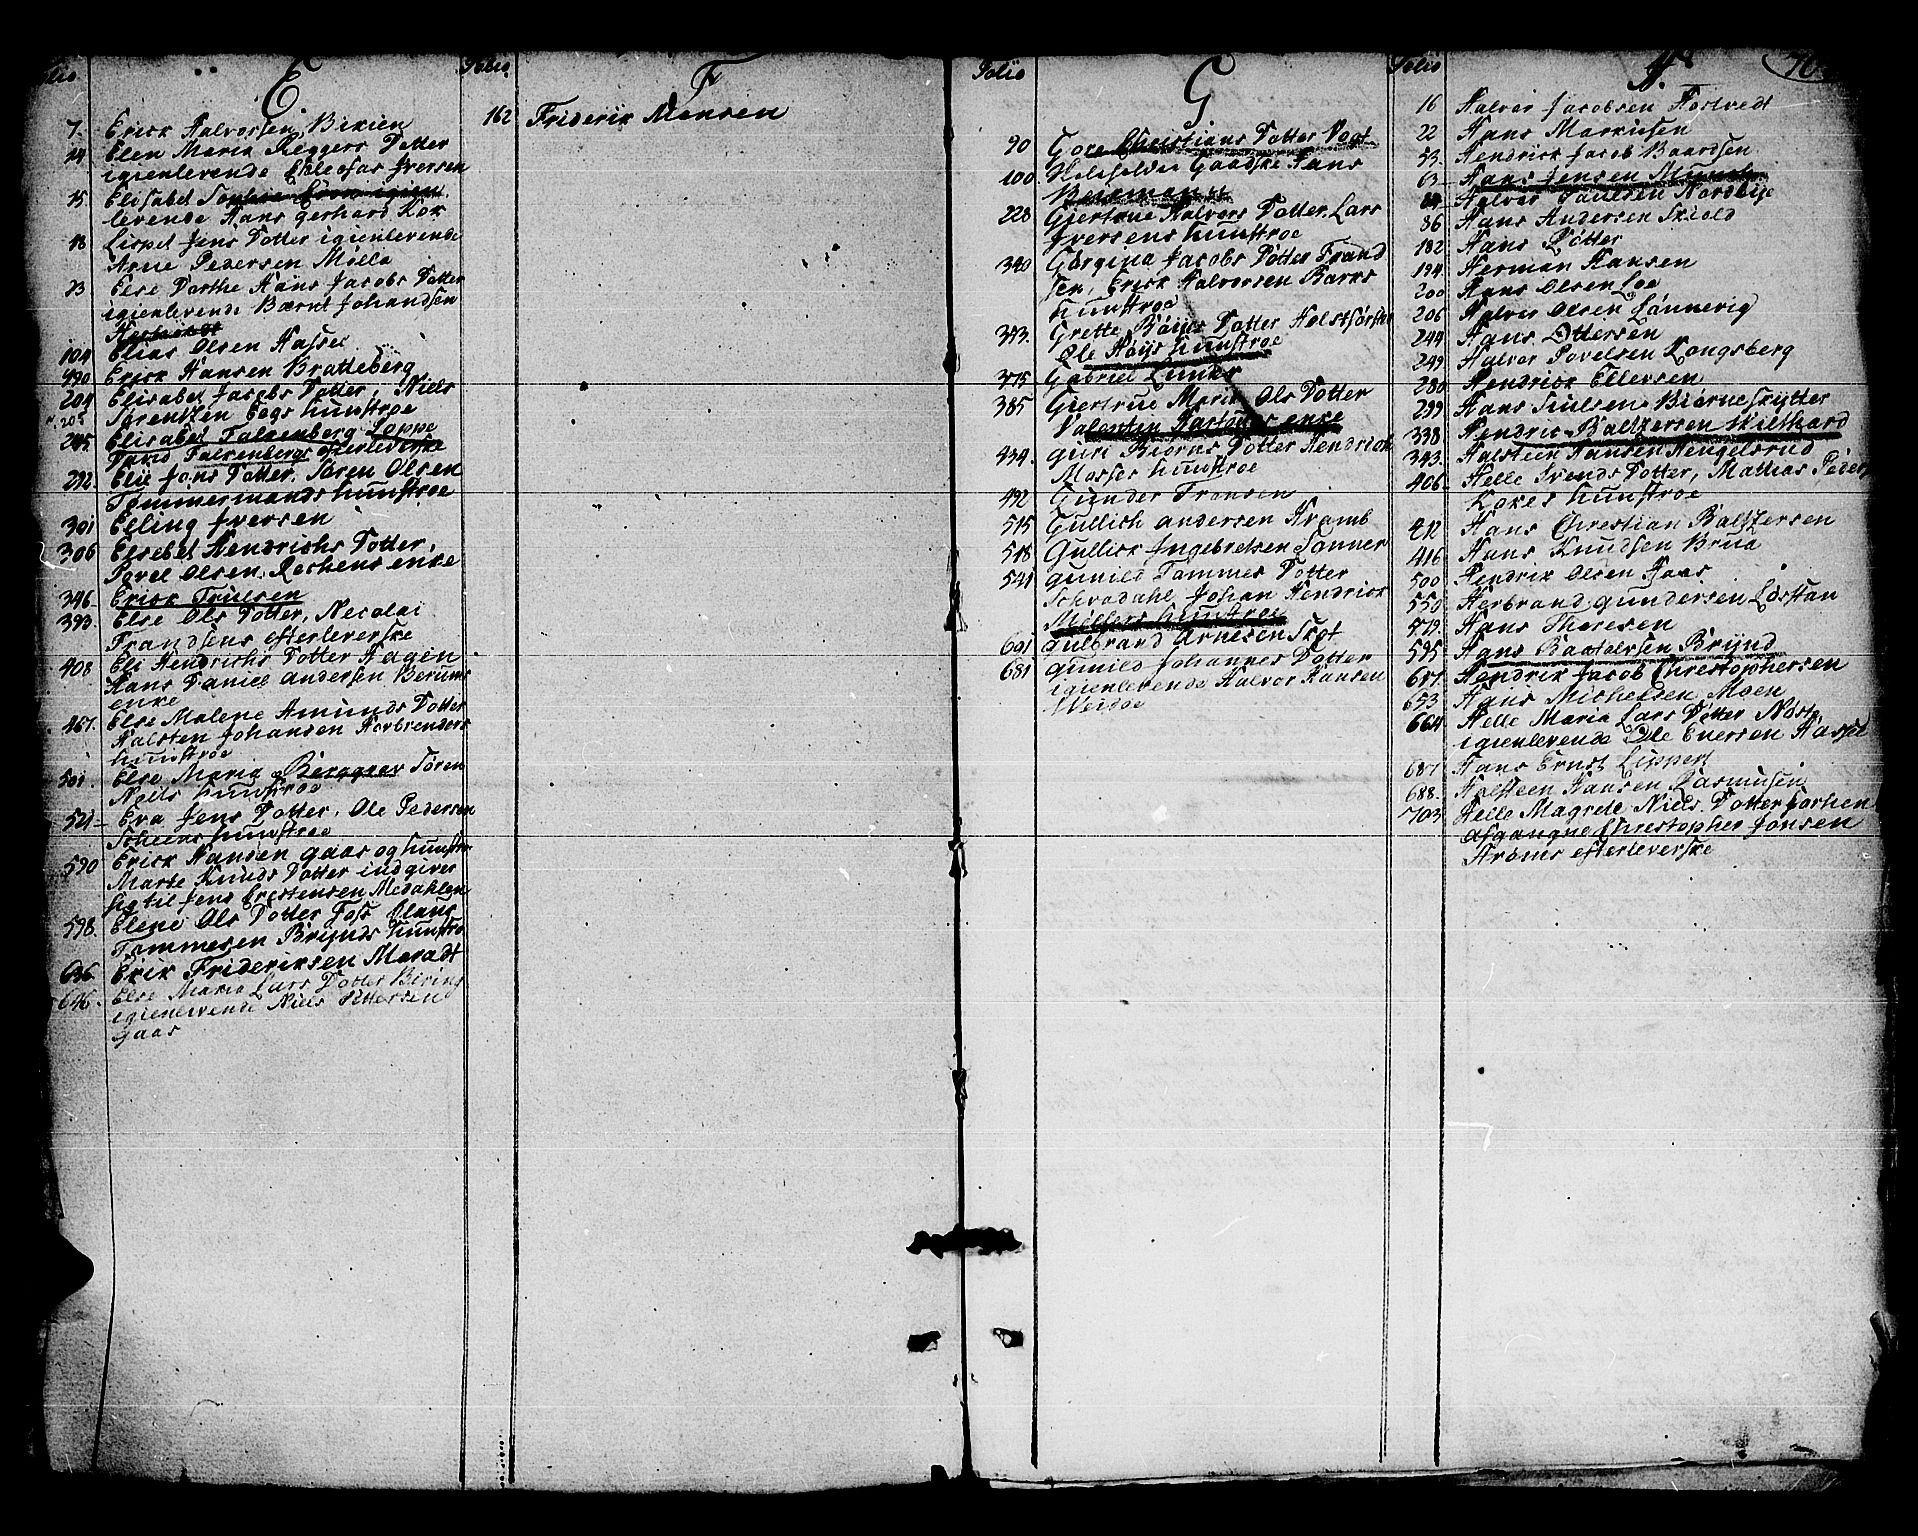 Folio
E.
7. Erick Halvorsen Bixien
14 Elen Maria Reggers Dotter
igienlevende Elleofas Iversen
15. Elisabet Sophia
levende Hans gerhard Kox
18 Lispet Jens Dotter igienlevende
Arne Pedersen Mølla
23 Else Dorthe Hans Jacobs Dotter
igienlevende Bærnt Johandsen
104 Elias Olsen Hassel
190 Erick Hansen Bratteberg
204 Elisabet Jacobs Dotter, Niels
205 Sørentzen Eegs hunstroe
245. Elisabet Falkenberg Leppe
David Falkenbergs efterleverske
292. Elie Jons Dotter, Søren Olsen
Tømmermands hunstroe
301 Elling Iversen
306 Elsebet Hendrichs Dotter,
Povel Olsen Rechens enke
346 Erick Trulsen
393. Else Ols Dotter, Necolai
Frandsens efterleverske
408 Eli Hendrichs Dotter Hagen
Hans Daniel Andersen Berums
enke
467. Else Malene Amunds Dotter
Halsten Johansen Herbrenders
hunstroe
501. Else Maria Berggrev Søren
Niels hunstroe
521 Eva Jens Dotter, Ole Pedersen
Scheens hunstroe
590 Erick Hansen gaas og hunstroe
Marte Knuds Dotter indgiver
sig til Jens Crestensen Medahlen
598. Elene Ols Dotter Foss Claus
Tommesen Brynds hunstro
636. Erik Frideriksen Maradt
646. Else Maria Lars Dotter Biring
igienlevende Niels Pettersen
gaas
Folio
F
162 Friderik Monsen
Folio
G
90 Gore Christians Dotter Vogt
100 Hans
228 Giertrue Halvors Dotter, Lars
Iversens hunstroe
340 Gørgina Jacobs Dotter Frand
sen, Erick Halvorsen Barks
hunstroe
373. Grette Bøiys Dotter
Ole Høiys hunstroe
375 Gabriel Lunde
385 Giertrue Maria Ols Dotter
Valentin enke
434. guri Biørns Dotter Hendrick
Mosses hunstroe
492 Gunder Fransen
515 Gullich andersen Kramb
518 Gullick Ingebretsen Sanner
541 gunild Tommes Dotter
Schradahl Johan Hendrick
Mellers hunstroe
601 gulbrand Arnesen Skot
681 gunild Johannes Dotter
igienlevende Halvor Hansen
Weidoe
Folio
H.
16 Halvor Jacobsen Hostvedt
22 Hans Markusen
53. Hendrick Jacob Baardsen
63 Hans Jensen Munch
84 Halvor Paulsen Nordbye
86 Hans Andersen Skiold
182 Hans Lotter
194 Herman Hansen
200 Hans Olsen Loe
206 Halvor Olsen Lønnevig
244 Hans Ottersen
249 Halvor Povelsen Kongsberg
280 Hendrick Ellersen
299 Hans Trulsen Biørneskytter
338 Hendric Baltzersen Hielthard
343. Halsteen Hansen Hengelsrud
406. Helle Svends Dotter, Mathias Peder
Kokes hunstroe
412 Hans Chrestian Baltzersen
416 Hans Knudsen Brua
500 Hendrik Olsen Haas
550 Herbrand gundersen Løstan
579. Hans Thoresen
595 Hans Baltzersen Brynd
617. Hendrik Jacob Chrestophersen
653 Hans Michelsen Moen
664 Helle Maria Lars Dotter Næss
igienlevende Ole Eversen Hassel
687. Hans Ernst Lippert
688. Holsteen Hansen Rasmusen
703 Helle Magrete Niels Dotter forhen
afgangne Chrestopher Jonsen
Arøms efterleverske